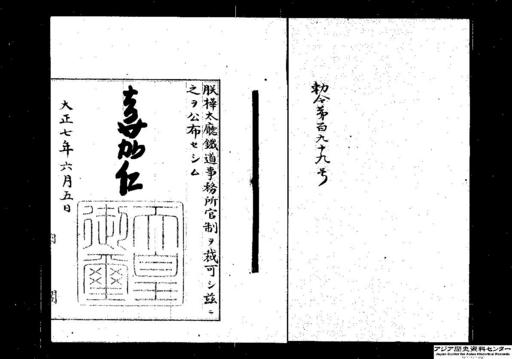 勅令第百九十九号
朕樺太廳鐵道事務所官制ヲ裁可シ茲ニ
之ヲ公布セシム
嘉仁
天皇御璽
大正七年六月五日
内閣
アジア歴史資料センター
Japan Center for Asian Historical Records